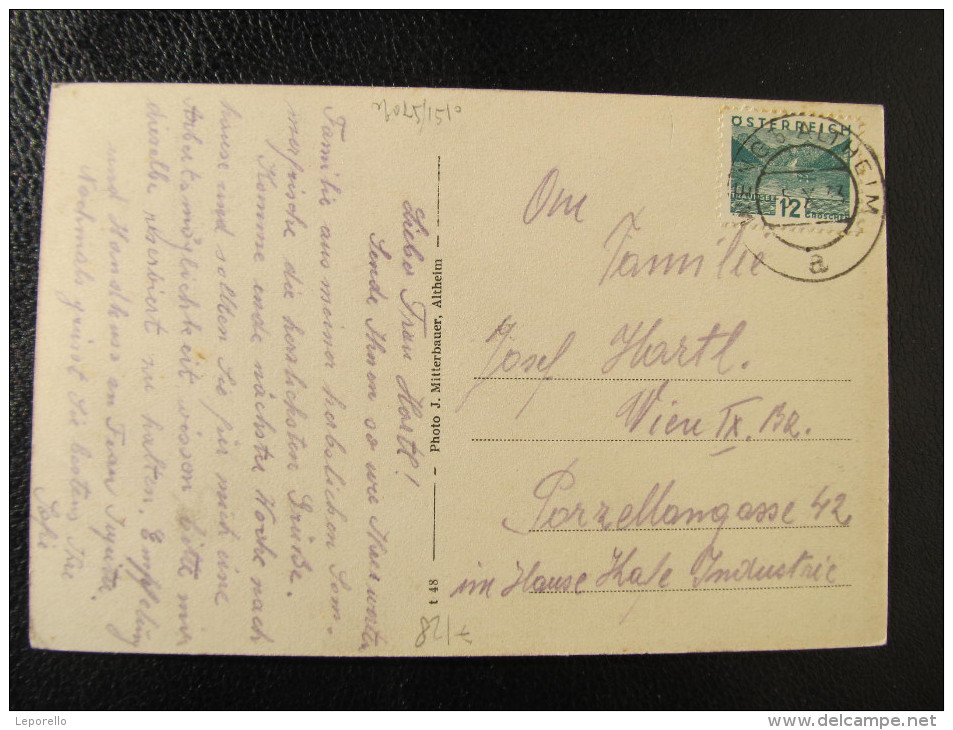 Liebe Frau Hartl!
Sende Ihnen so wie Ihrer werten
Familie aus meiner herbstlichen Som-
merfrische die herzlichsten Grüße.
Komme ende nächster Woche nach
hause und sollten Sie für mich eine
Arbeitsmöglichkeit wissen bitte mir
dieselbe reserviert zu halten. Empfehlung
und Handkuss an Frau
Nochmals grüsst Sie bestens Ihre
Sofie
t 48 — Photo J. Mitterbauer, Altheim —
7/28
ÖSTERREICH
TRAUNSEE 12 GROSCHEN
ALTHEIM
a
Om
Familie
Josef Hartl.
Wien IX. Bz.
Porzellangasse 42
im Hause Kafe Industrie
Leporello
www.delcampe.net